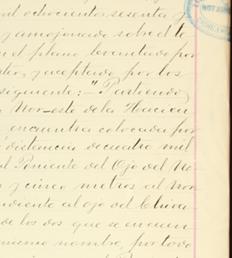 mil ochocientos sesenta y
y amojonado sobre el te
n el plano levantado por
y aceptado por los
siguiente:—"Partiendo
Nor-este de la Hacien
encuentra colocada por
distancia de cuatro mil
al Poniente del Ojo del
y cinco metros al Nor
ndiente al ojo del Chiva
de los dos que se encuen
mismo nombre, por todo